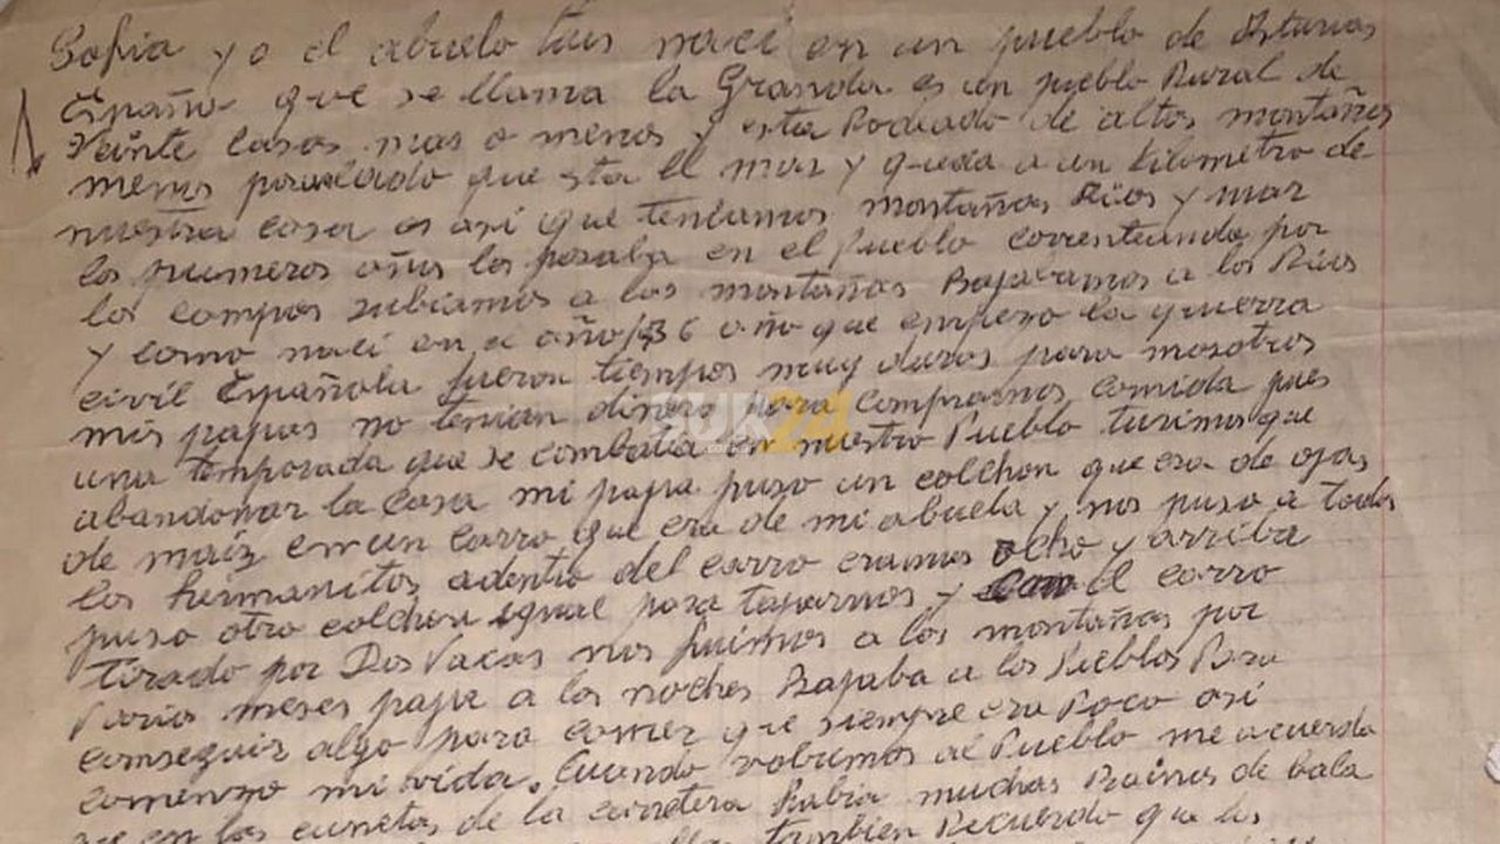 Sofia yo el abuelo Luis naci en un pueblo de Asturias
España que se llama la Granda es un pueblo Rural de
Veinte casas mas o menos y esta Rodeado de altas montañas
menos por el lado que esta el mar y queda a un kilometro de
nuestra casa es asi que teniamos montañas Rios y mar
los primeros años los pasaba en el Pueblo correteando por
los campos subiamos a las montañas Bajabamos a los Rios
y como naci en e año 1936 año que empezo la guerra
civil Española fueron tiempos muy duros para nosotros
mis papas no tenian dinero para comprarnos comida pues
una temporada que se combatia en nuestro Pueblo tuvimos que
abandonar la casa mi papa puso un colchon que era de ojas
de maiz en un carro que era de mi abuela y nos puso a todos
los hermanitos adentro del carro eramos ocho y arriba
puso otro colchon igual para taparnos y el carro
tirado por Dos Vacas nos fuimos a las montañas por
Varios meses papa a las noches Bajaba a los Pueblos Para
conseguir algo para comer que siempre era Poco asi
comenzo mi vida. Cuando volvimos al Pueblo me acuerdo
que en las cunetas de la carretera Habia muchas Bainas de bala
tambien Recuerdo que los
SUR24